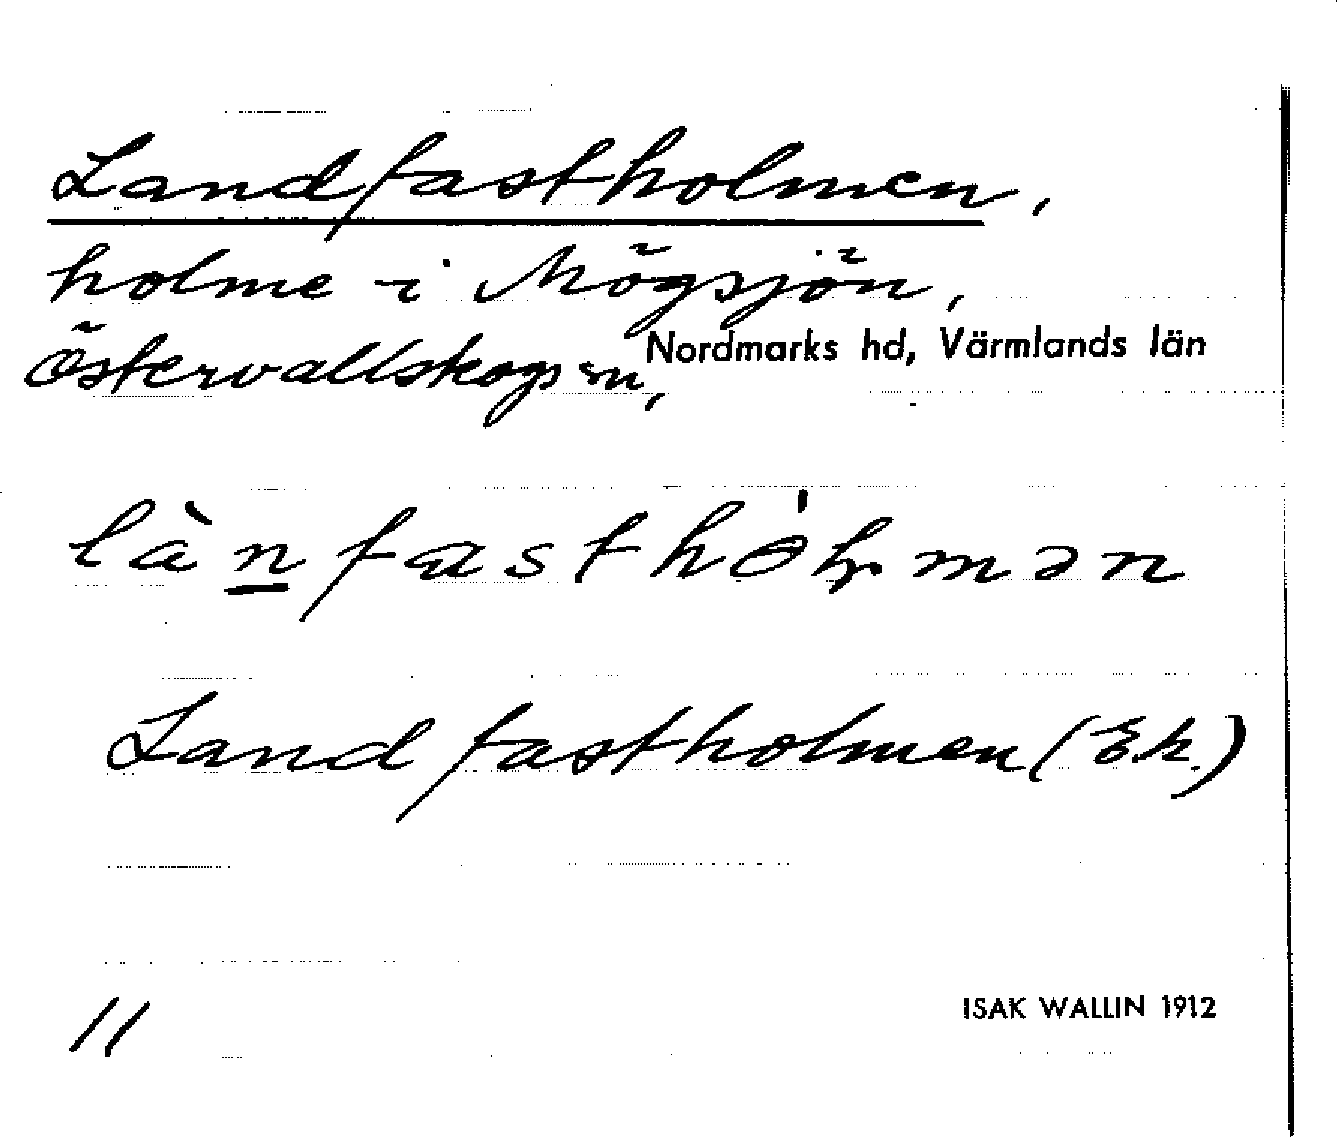 Landfastholmen,
holme i Mögsjön,
Östervallskogs sn, Nordmarks hd, Värmlands län
Landfastholmen (Ek.)
11
ISAK WALLIN 1912